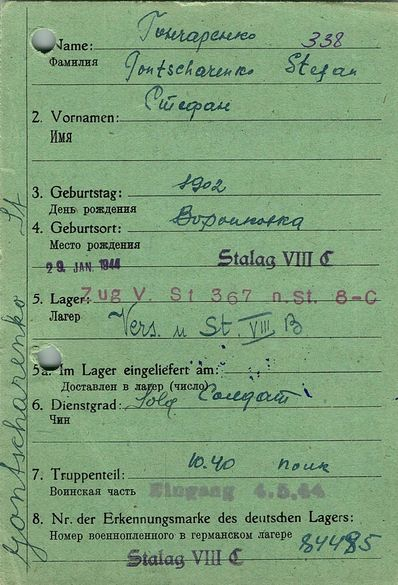 Name: Гончаренко 338
Фамилия Gontscharenko Stefan
Стефан
2. Vornamen:
Имя
3. Geburtstag: 1902
День рождения
4. Geburtsort: Воронковка
Место рождения
29. JAN. 1944 Stalag VIII C
5. Lager: Zug V. St 367 n. St. 8-C
Лагер Vers. n St VIII B
5a. Im Lager eingeliefert am:
Доставлен в лагер (число)
6. Dienstgrad: Sold Солдат
Чин
7. Truppenteil: 1040 полк
Воинская часть Eingang 4.5.44
8. Nr. der Erkennungsmarke des deutschen Lagers:
Номер военнопленного в германском лагере 84485
Stalag VIII C
Gontscharenko St